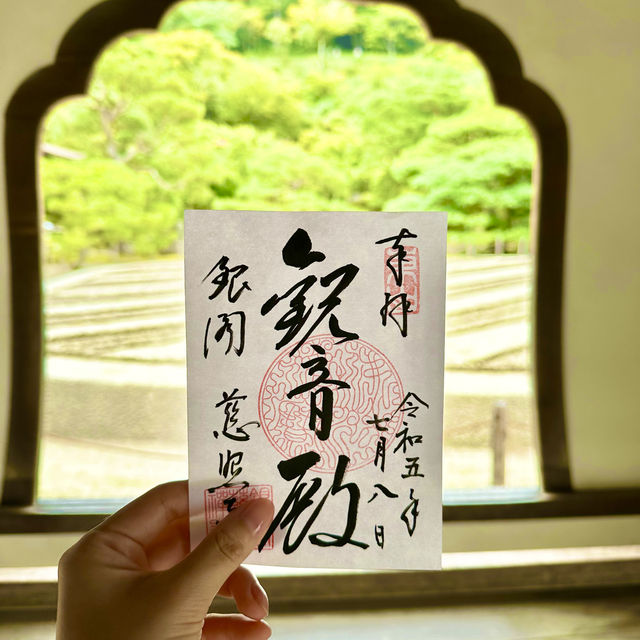 奉拝
令和五年
七月八日
観音殿
銀閣
慈照